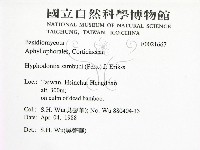 國立自然科學博物館
NATIONAL MUSEUM OF NATURAL SCIENCE
TAICHUNG, TAIWAN, R.O.CHINA
Basidiomycota
Aphyllophorales, Corticiaceae
Hyphodontia sambuci (Pers.) J. Erikss.
Loc.: Taiwan. Hsinchu: Hengshan
alt. 300m;
on culm of dead bamboo.
Col.: S.H. Wu No. Wu 880404-13
Date: Apr 04, 1988
Det.: S.H. Wu